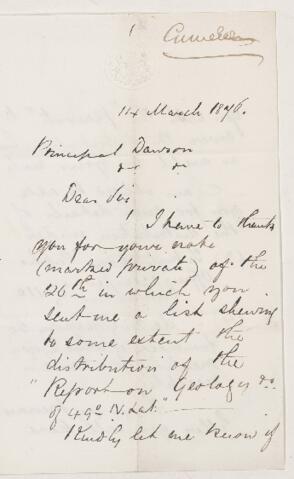 14 March 1876.
Principal Dawson
" "
Dear Sir
I have to thank
you for your note
(marked private) of the
26th in which you
sent me a list shewing
to some extent the
distribution of the
"Report on Geology &c
of 49° N. Lat."
Kindly let me know if